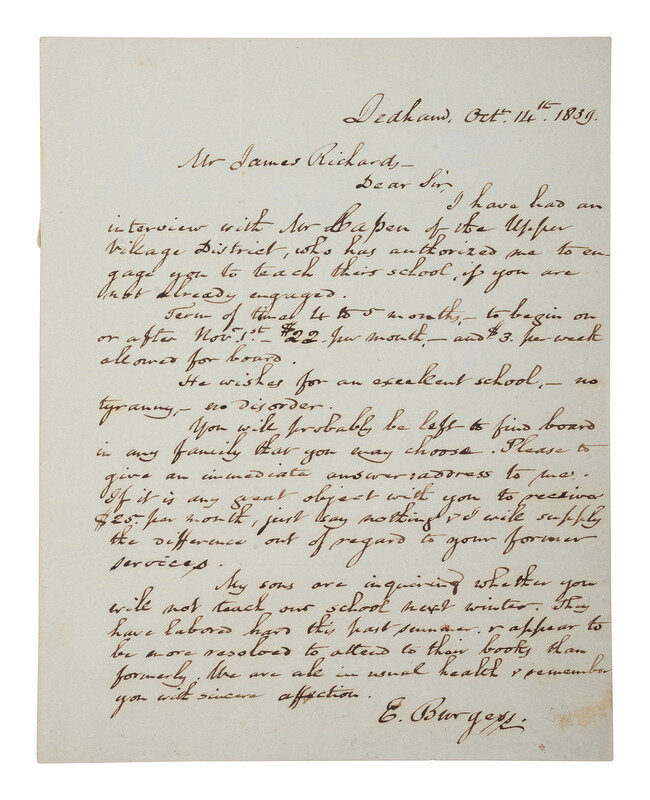 Dedham, Oct. 14th. 1839.
Mr James Richards—
Dear Sir,
I have had an
interview with Mr Capen of the Upper
Village District, who has authorized me to en-
gage you to teach their school, if you are
not already engaged.
Term of time 4 to 5 months,— to begin on
or after Nov. 1st.— $22 per month,— and $3. per week
allowed for board.
He wishes for an excellent school,— no
tyranny,— no disorder.
You will probably be left to find board
in any family that you may choose. Please to
give an immediate answer: address to me.
If it is any great object with you to receive
$25. per month, just say nothing & I will supply
the difference out of regard to your former
services.
My sons are inquiring whether you
will not teach our school next winter. They
have labored hard this past summer & appear to
be more resolved to attend to their books than
formerly. We are all in usual health & remember
you with sincere affection.
E. Burgess.